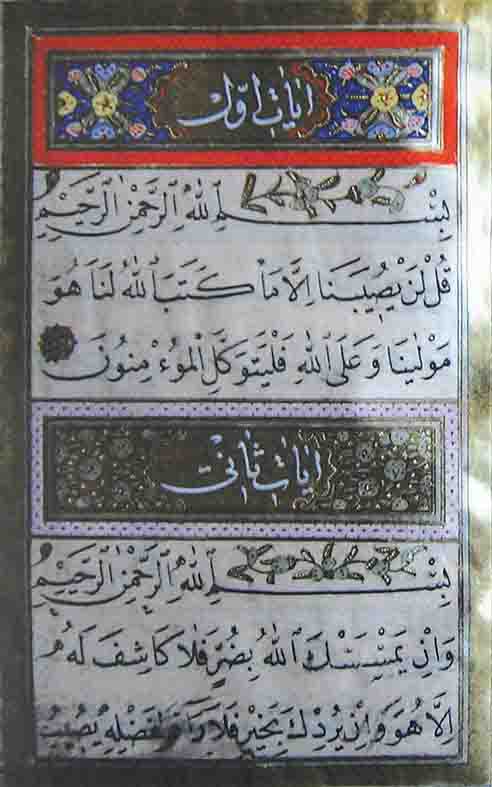 ايات اوّل
بِسْمِ اللهِ الرَّحْمٰنِ الرَّحِيْمِ
قُلْ لَنْ يُصِيْبَنَا اِلَّا مَا كَتَبَ اللهُ لَنَا هُوَ
مَوْلٰينَا وَعَلَى اللهِ فَلْيَتَوَكَّلِ الْمُوءْمِنُونَ
ايات ثانى
بِسْمِ اللهِ الرَّحْمٰنِ الرَّحِيْمِ
وَاِنْ يَمْسَسْكَ اللهُ بِضُرٍّ فَلَا كَاشِفَ لَهُ
اِلَّا هُوَ وَاِنْ يُرِدْكَ بِخَيْرٍ فَلَا رَادَّ لِفَضْلِهِ يُصِيْبُ